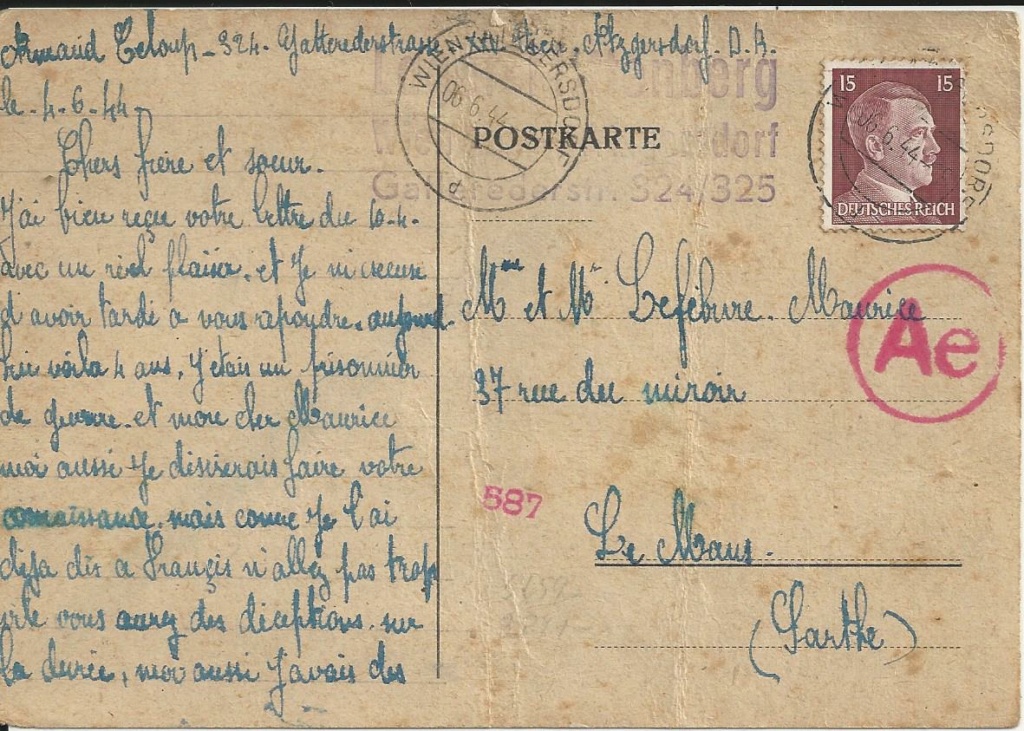 Armand Teloup - 324. Gatterederstrasse XXV. Wien. Atzgersdorf. D.R.
le 4-6-44
Chers frère et soeur.
J'ai bien reçue votre lettre du 10-4-
avec un réel plaisir. et je m'excuse
d'avoir tardé a vous rapondre. aujourd
hui voila 4 ans. J'étais un prisonnier
de guerre. et mon cher Maurice
moi aussi je désirerais faire votre
connaissance. mais comme je l'ai
déja dis a François n'allez pas trop
vite vous aurez des déceptions. sur
la durée, moi aussi j'avais des
WIEN ATZGERSDORF
06.6.44
nberg
Wien dorf
Gatterederstr. 324/325
POSTKARTE
15 15
DEUTSCHES REICH
06.6.44
Mme et Mr Lefébure. Maurice
37 rue du miroir
Ae
587
Le Mans.
(Sarthe)